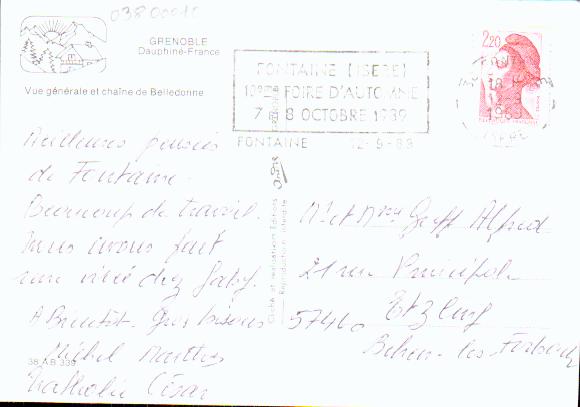 03800010
GRENOBLE
Dauphiné-France
Vue générale et chaîne de Belledonne
FONTAINE (ISERE)
10ème FOIRE D'AUTOMNE
7 8 OCTOBRE 1989
FONTAINE 12-9-89
2,20
18 H
12-9
1989
ISERE
Meilleures pensées
de Fontaine.
Beaucoup de travail.
Nous avons fait
une visite chez Gaby.
A Bientôt. Gros bisous
Michel Marthe
Nathalie César
38 AB 339
Cliché et réalisation Editions
Reproduction interdite
Mr et Mme Alfred
21 rue Principale
Etzling
57460
Behren-les-Forbach